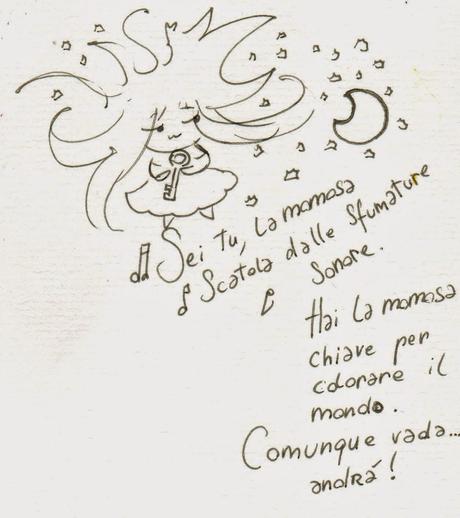 Sei tu, la momosa
Scatola dalle Sfumature
Sonore.
Hai la momosa
chiave per
colorare il
mondo.
Comunque vada...
andrá!